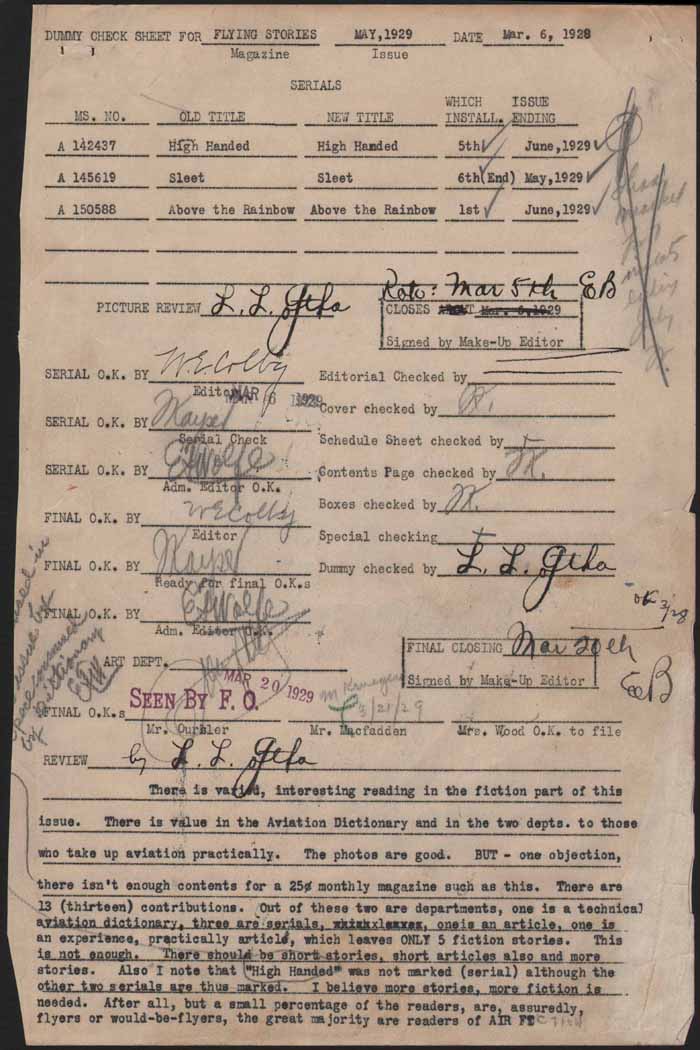 DUMMY CHECK SHEET FOR FLYING STORIES MAY,1929 DATE Mar. 6, 1928
Magazine Issue
SERIALS
WHICH ISSUE
MS. NO. OLD TITLE NEW TITLE INSTALL. ENDING
A 142437 High Handed High Handed 5th June,1929
A 145619 Sleet Sleet 6th(End) May,1929
A 150588 Above the Rainbow Above the Rainbow 1st June,1929
Roto: Mar 5th EB
PICTURE REVIEW L. L.
CLOSES Mar. 6,1929
Signed by Make-Up Editor
SERIAL O.K. BY W E Colby Editorial Checked by
Editor MAR 6 1929 Cover checked by
SERIAL O.K. BY
Serial Check Schedule Sheet checked by
SERIAL O.K. BY EHWolfe Contents Page checked by
Adm. Editor O.K.
Boxes checked by
FINAL O.K. BY W E Colby
Editor Special checking
FINAL O.K. BY Dummy checked by L. L.
Ready for final O.K.s
FINAL O.K. BY EHWolfe OK 3/28
Adm. Editor O.K.
FINAL CLOSING Mar 20th
ART DEPT. EB
Signed by Make-Up Editor
MAR 20 1929
SEEN BY F. O. 3/21/29
FINAL O.K.s
Mr. Oursler Mr. Macfadden Mrs. Wood O.K. to file
REVIEW by L. L.
There is varied, interesting reading in the fiction part of this
issue. There is value in the Aviation Dictionary and in the two depts. to those
who take up aviation practically. The photos are good. BUT - one objection,
there isn't enough contents for a 25¢ monthly magazine such as this. There are
13 (thirteen) contributions. Out of these two are departments, one is a technical
aviation dictionary, three are serials, oneis an article, one is
an experience, practically article, which leaves ONLY 5 fiction stories. This
is not enough. There should be short stories, short articles also and more
stories. Also I note that "High Handed" was not marked (serial) although the
other two serials are thus marked. I believe more stories, more fiction is
needed. After all, but a small percentage of the readers, are, assuredly,
flyers or would-be-flyers, the great majority are readers of AIR